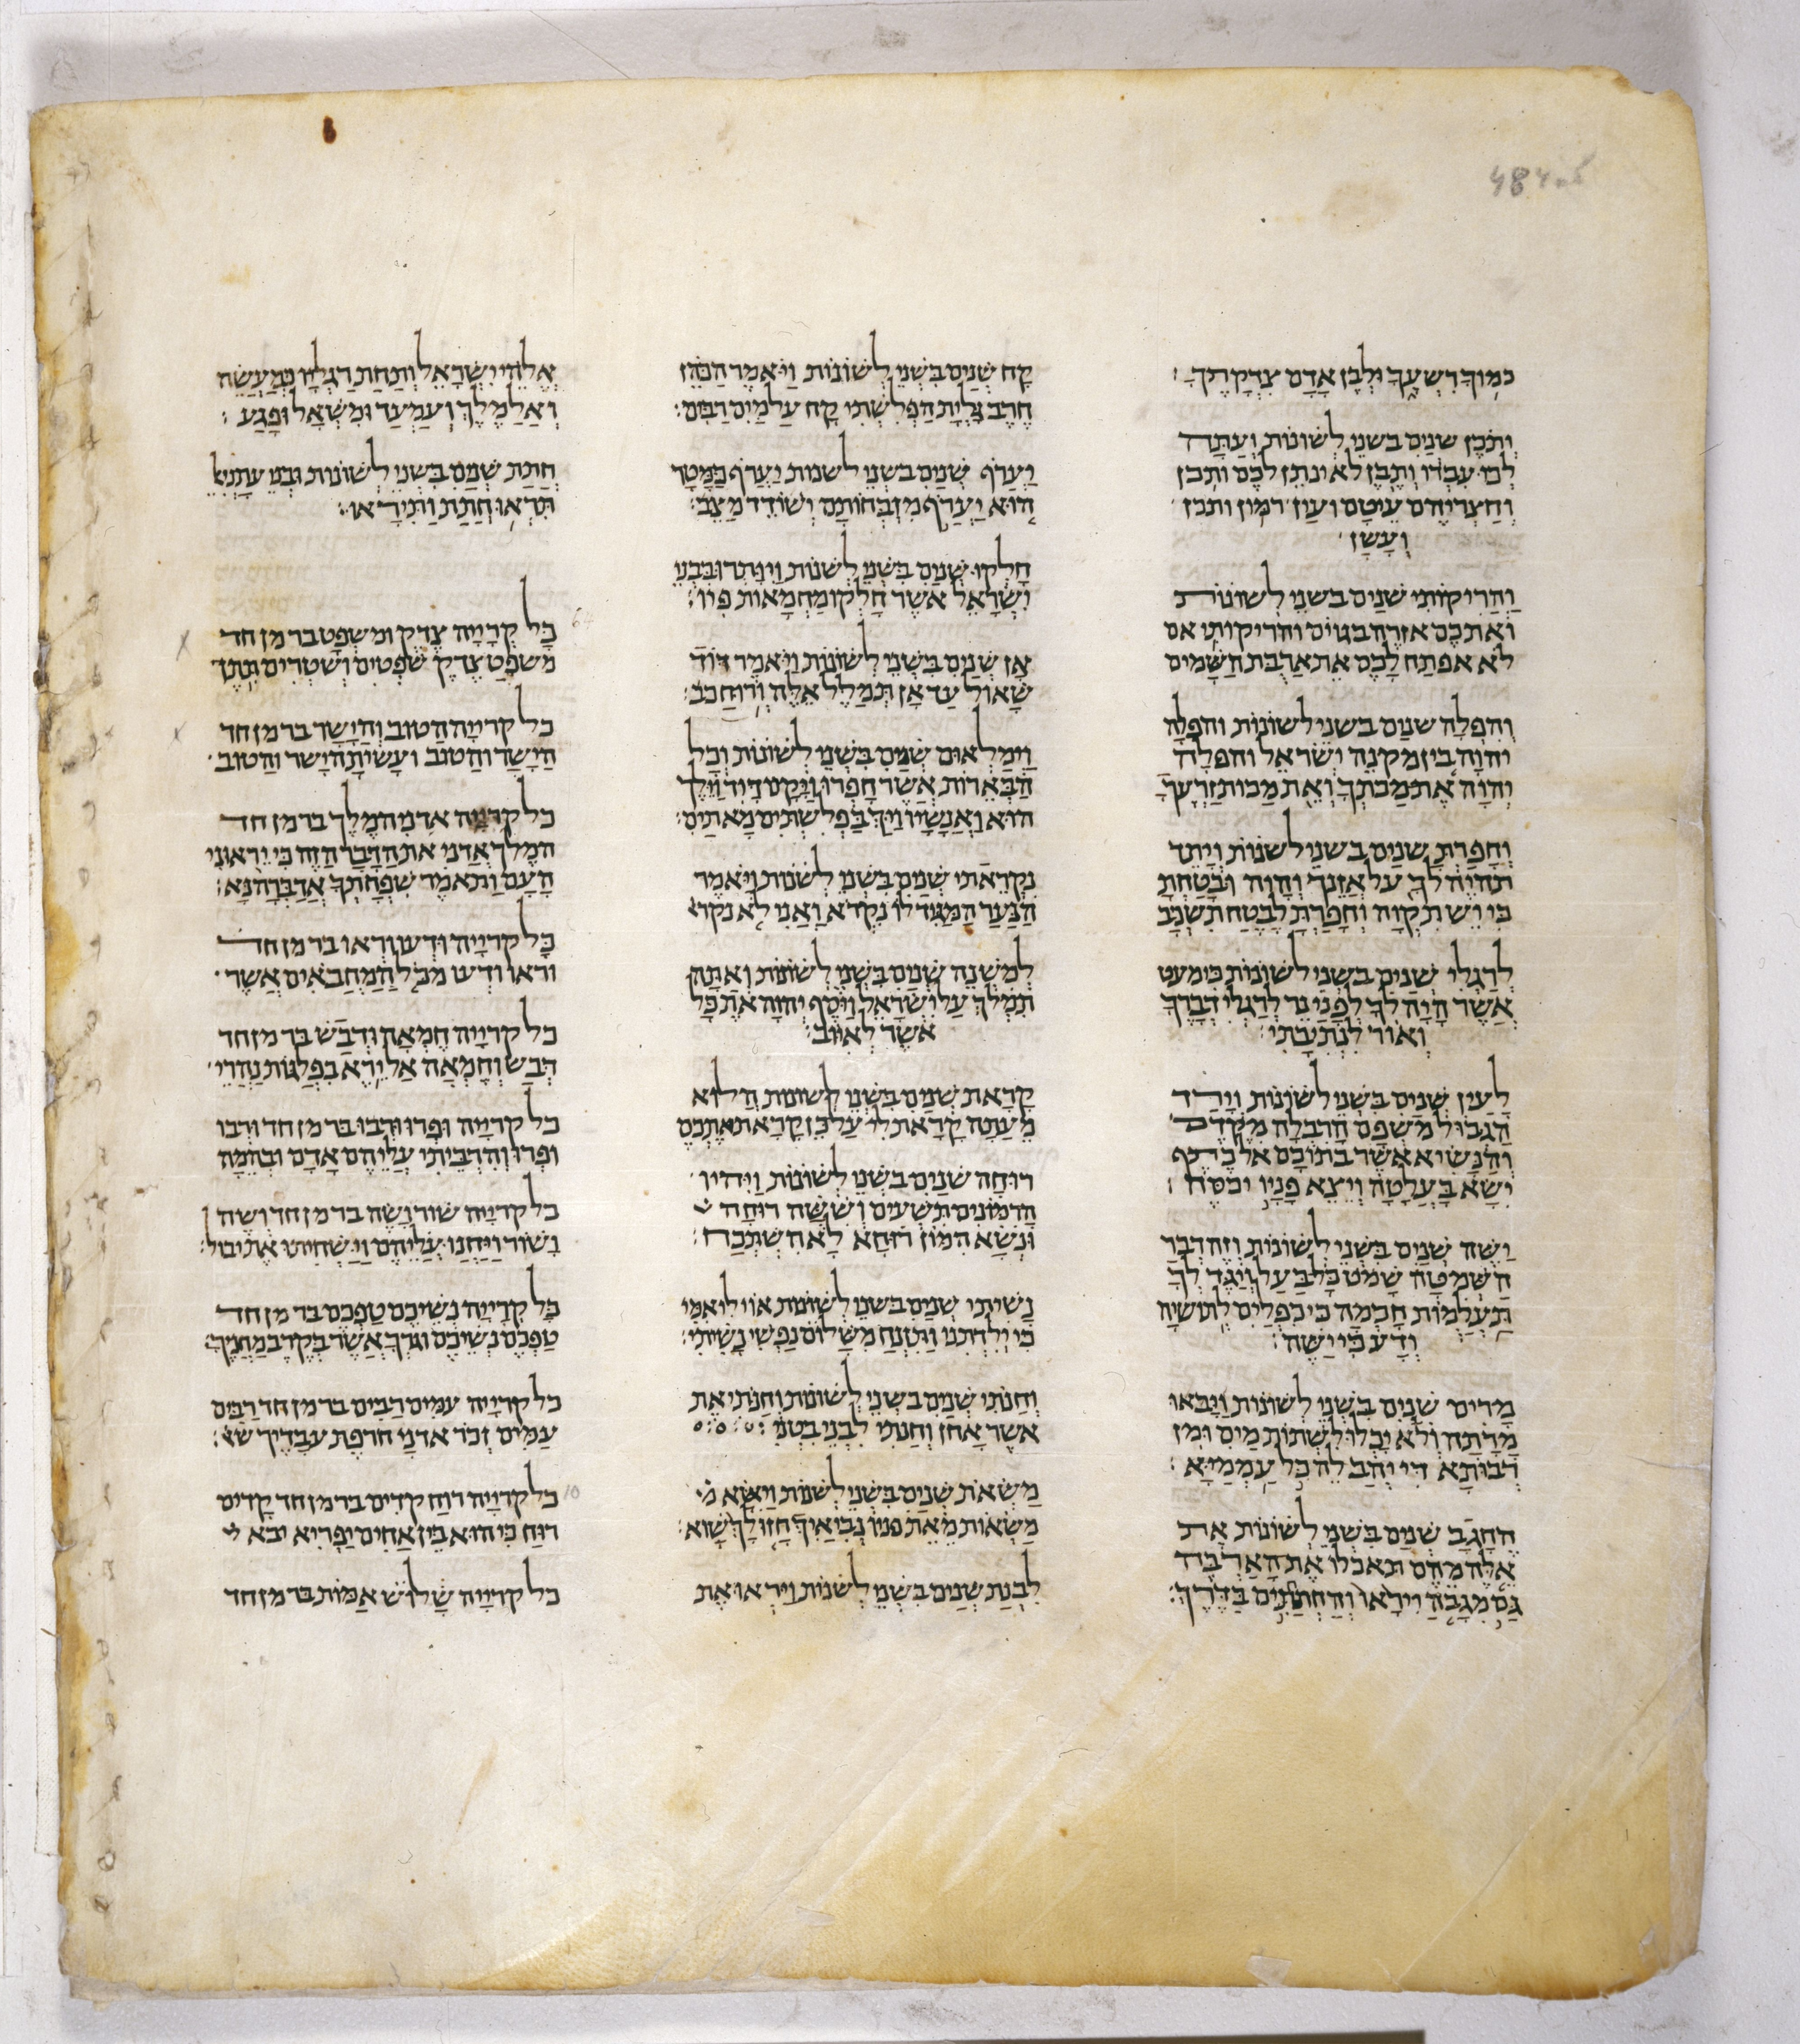 484
כמוך רשעך ולבן אדם צדקתך׃
ותכן שנים בשני לשונות ועתה
לכו עבדו ותבן לא ינתן לכם ותכן
וחצריהם עיטם ועין רמון ותכן
ועשן
והריקותי שנים בשני לשונות
ואתכם אזרה בגוים והריקותי אם
לא אפתח לכם את ארבות השמים
והפלה שנים בשני לשונות והפלה
יהוה בין מקנה ישראל והפלה
יהוה את מכתך ואת מכות זרעך
וחפרת שנים בשני לשונות ויתד
תהיה לך על אזנך והיה ובטחת
כי יש תקוה וחפרת לבטח תשכב
לרגלי שנים בשני לשונות כי מעט
אשר היה לך לפני נר לרגלי דברך
ואור לנתיבתי׃
לעין שנים בשני לשונות וירד
הגבול משפם הרבלה מקדם
והנשיא אשר בתוכם אל כתף
ישא בעלטה ויצא פניו יכסה׃
ישה שנים בשני לשונות וזה דבר
השמטה שמט כל בעל ויגד לך
תעלמות חכמה כי כפלים לתושיה
ודע כי ישה׃
מרים שנים בשני לשונות ויבאו
מרתה ולא יכלו לשתות מים ומן
רבותא די יהב לה כל עממיא׃
החגב שנים בשני לשונות את
אלה מהם תאכלו את הארבה
גם מגבה ייראו וחתחתים בדרך׃
קח שנים בשני לשונות ויאמר הכהן
חרב גלית הפלשתי קח עלמים רבים׃
יערף שנים בשני לשנות יערף כמטר
הוא יערף מזבחותם ישודד מצב׃
חלקו שנים בשני לשנות ויותירו בבני
ישראל אשר חלקו מחמאות פיו׃
אן שנים בשני לשונות ויאמר דוד
שאול עד אן תמלל אלה ורוח כב׃
וימלאום שנים בשני לשונות וכל
הבארות אשר חפרו ויקם דויד וילך
הוא ואנשיו ויך בפלשתים מאתים׃
נקראתי שנים בשני לשנות ויאמר
הנער המגיד לו נקרא ואני לא נקר׳
למשנה שנים בשני לשונות ואתה
תמלך על ישראל ויסף יהוה את כל
אשר לאיוב׃
קראת שנים בשני לשונות הלוא
מעתה קראת לי על כן קראת אתכם
רוחה שנים בשני לשונות ויהיו
הרמונים תשעים וששה רוחה
ונשא המון חטא לא השתכח׃
נשיתי שנים בשני לשונות אוי לי אמי
כי ילדתני ותזנח משלום נפשי נשיתי׃
וחנתי שנים בשני לשונות וחנתי את
אשר אחן וחנתי לבני בטני׃
משאת שנים בשני לשנות וישא מ׳
משאות מאת פניו נביאיך חזו לך שוא׃
לבנת שנים בשני לשנות ויראו את
אלהי ישראל ותחת רגליו כמעשה
ואל המלך ועמעד ומשאל ופגע׃
חתת שנים בשני לשונות ובני עתניא׳
תראו חתת ותיראו׃
כל קריה צדק ומשפט בר מן חד
משפט צדק שפטים ושטרים תתן
כל קריה הטוב והישר בר מן חד
הישר והטוב ועשית הישר והטוב
כל קריה אדני המלך בר מן חד
המלך אדני את הדבר הזה כי יראוני
העם ותאמר שפחתך אדברה נא׃
כל קריה ודעו וראו בר מן חד
וראו ודעו מכל המחבאים אשר׳
כל קריה חמאה ודבש בר מן חד
דבש וחמאה אל ירא בפלגות נהרי׳
כל קריה ופרו ורבו בר מן חד ורבו
ופרו והרביתי עליהם אדם ובהמה
כל קריה שור ושה בר מן חד ושה
ושור ויחנו עליהם וישחיתו את יבול׃
כל קריה נשיכם טפכם בר מן חד
טפכם נשיכם וגרך אשר בקרב מחניך׃
כל קריה עמים רבים בר מן חד רבים
עמים זכר אדני חרפת עבדיך ש׳׃
כל קריה רוח קדים בר מן חד קדים
רוח כי הוא בין אחים יפריא יבא
כל קריה שלוש אמות בר מן חד